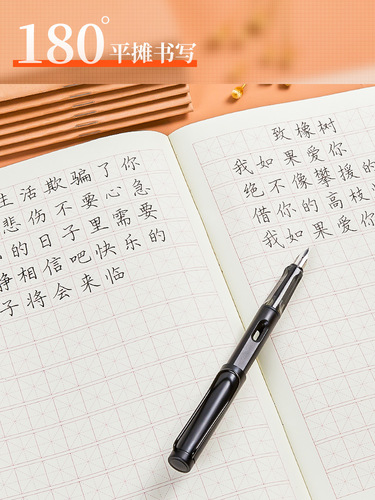 180°平摊书写
生活欺骗了你
悲伤不要心急
的日子里需要
静相信吧快乐的
子将会来临
致橡树
我如果爱你
绝不像攀援的
借你的高枝
我如果爱你